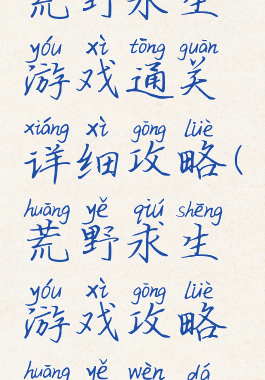 荒野求生
yóu xì tōng guān
游戏通关
xiáng xì gōng lüè
详细攻略(
huāng yě qiú shēng
荒野求生
yóu xì gōng lüè
游戏攻略
huāng yě wèn dá